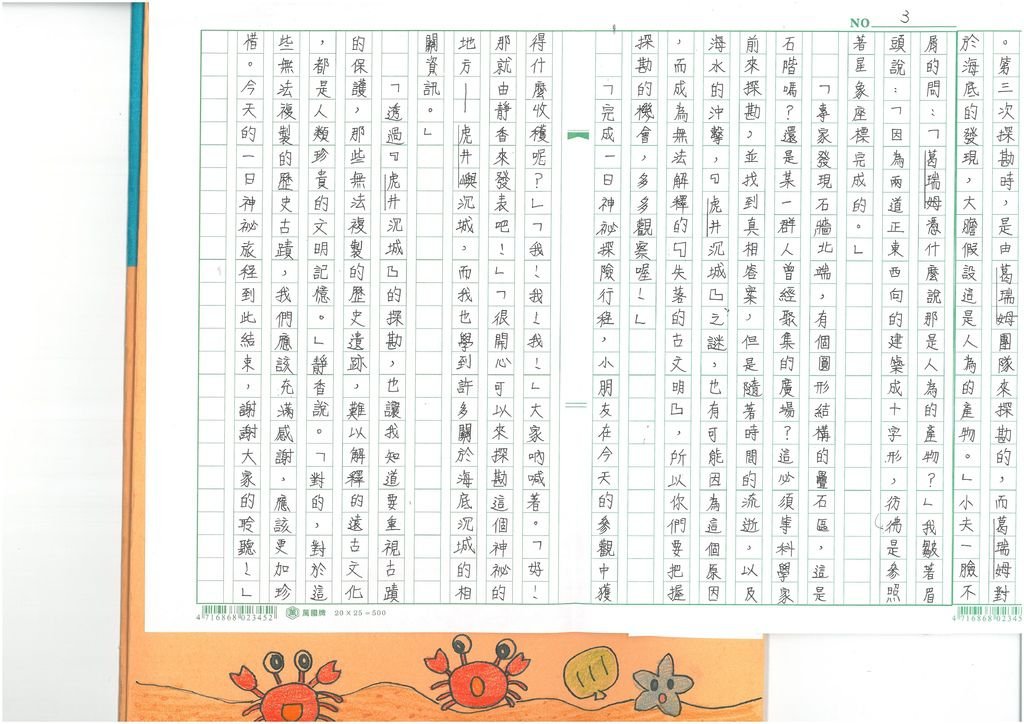 NO 3
。第三次探勘時，是由葛瑞姆團隊來探勘的，而葛瑞姆對
於海底的發現，大膽假設這是人為的產物。」小夫一臉不
屑的問：「葛瑞姆憑什麼說那是人為的產物？」我皺著眉
頭說：「因為兩道正東西向的建築成十字形，彷彿是參照
著星象座標完成的。」
「專家發現石牆北端，有個圓形結構的疊石區，這是
石階嗎？還是某一群人曾經聚集的廣場？這必須等科學家
前來探勘，並找到真相答案，但是隨著時間的流逝，以及
海水的沖擊，『虎井沉城』之謎，也有可能因為這個原因
，而成為無法解釋的『失落的古文明』，所以你們要把握
探勘的機會，多多觀察喔！」
「完成一日神祕探險行程，小朋友在今天的參觀中獲
得什麼收穫呢？」「我！我！我！」大家吶喊著。「好！
那就由靜香來發表吧！」「很開心可以來探勘這個神祕的
地方——虎井嶼沉城，而我也學到許多關於海底沉城的相
關資訊。」
「透過『虎井沉城』的探勘，也讓我知道要重視古蹟
的保護，那些無法複製的歷史遺跡，難以解釋的遠古文化
，都是人類珍貴的文明記憶。」靜香說。「對的，對於這
些無法複製的歷史古蹟，我們應該充滿感謝，應該更加珍
惜。今天的一日神祕旅程到此結束，謝謝大家的聆聽！」
4 716868 023452
萬國牌 20×25=500
4 716868 02345